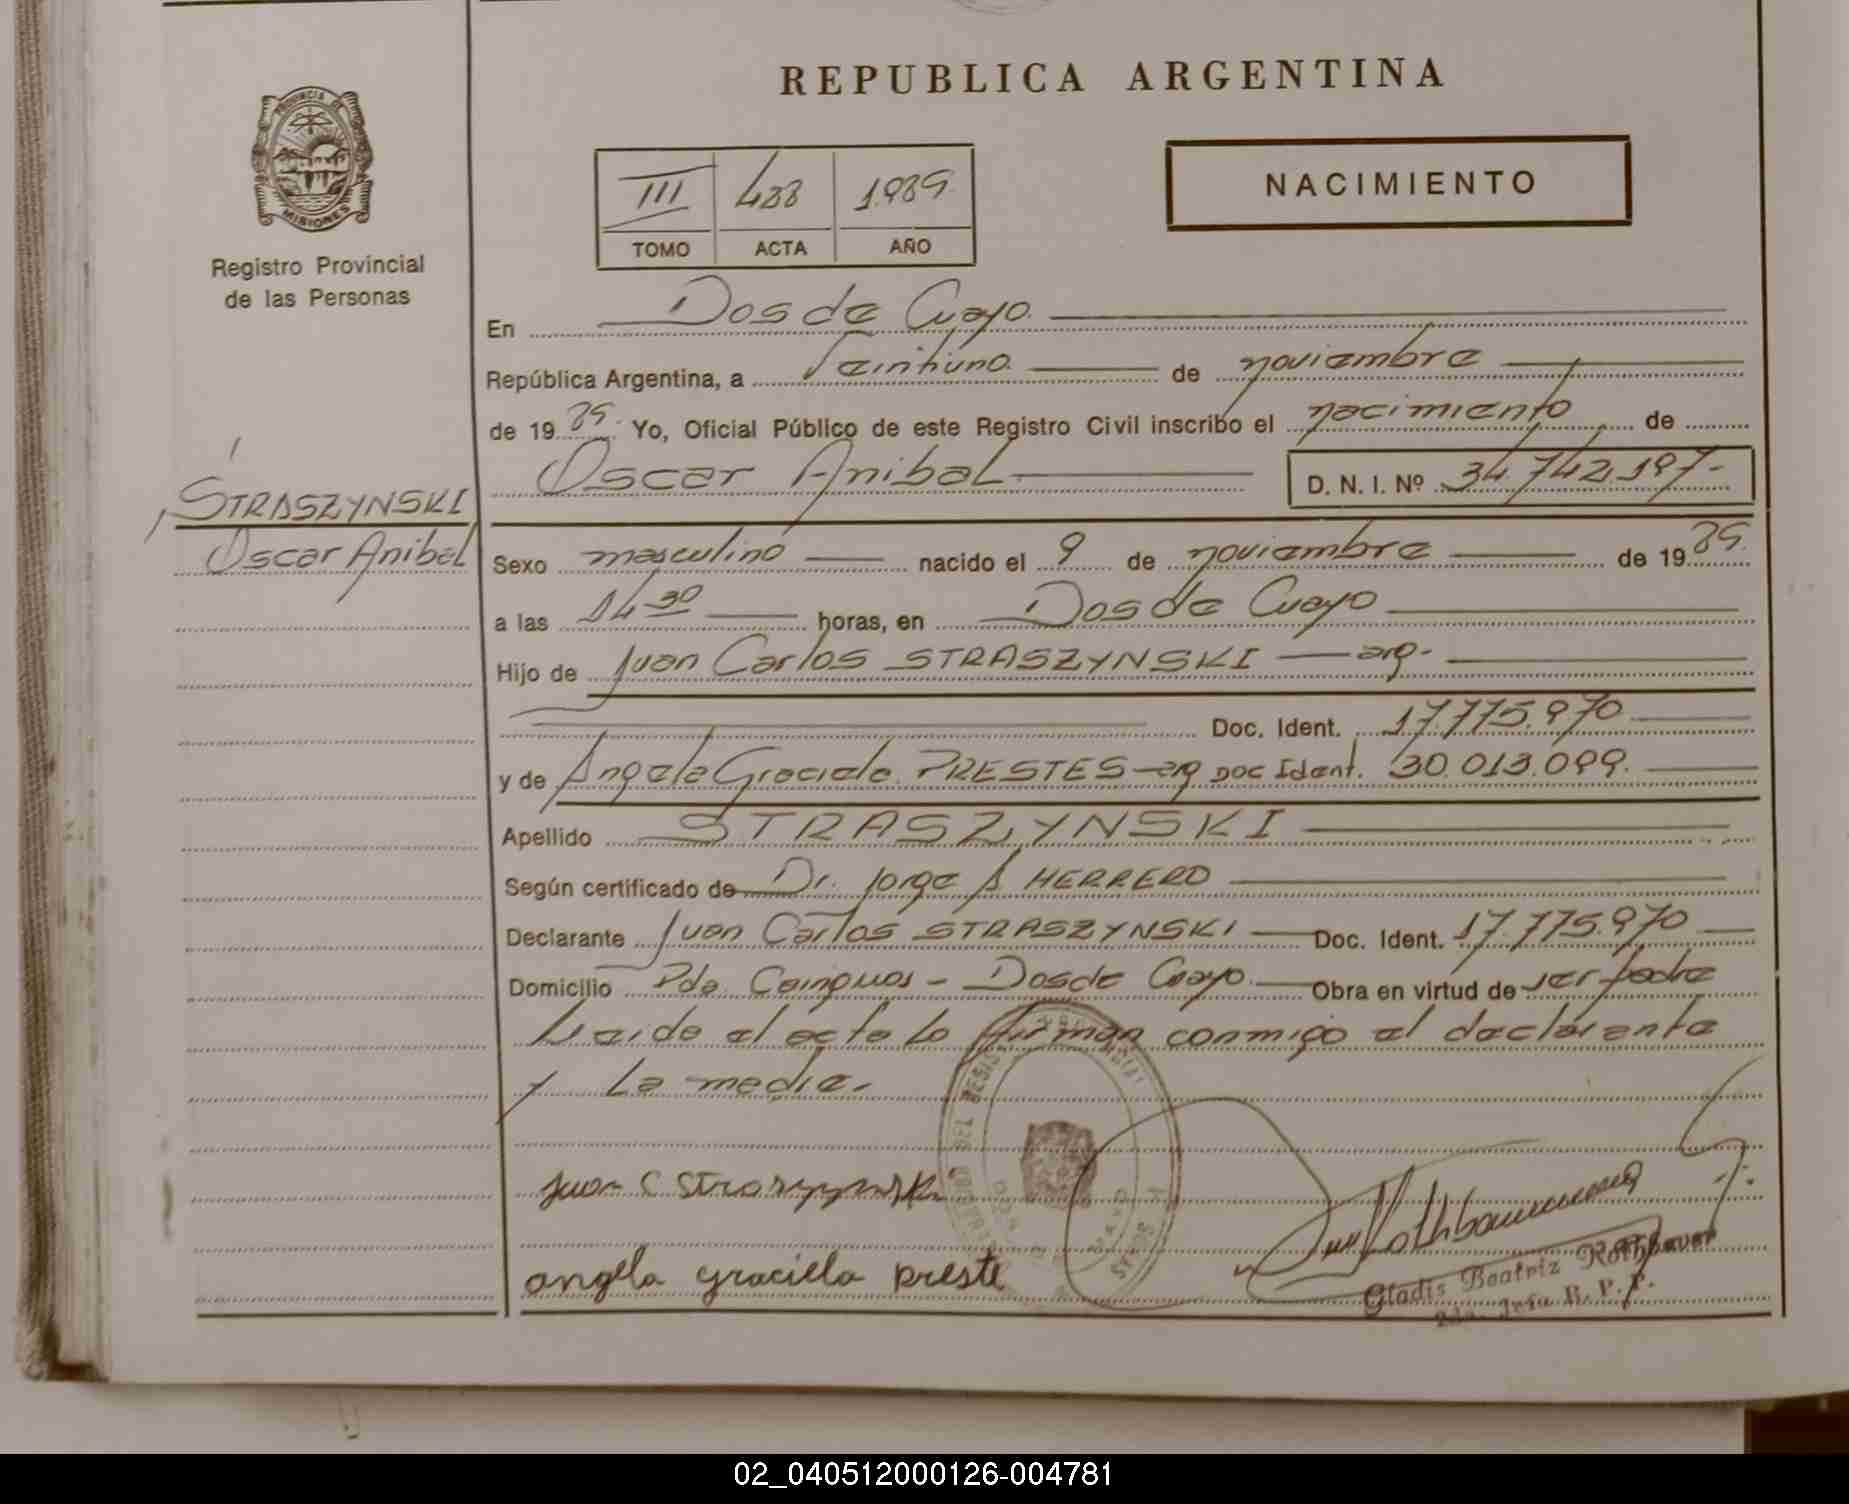 PROVINCIA DE
MISIONES
Registro Provincial
de las Personas
STRASZYNSKI
Oscar Anibal
REPUBLICA ARGENTINA
III 488 1.989
TOMO ACTA AÑO
NACIMIENTO
En Dos de Mayo
República Argentina, a Veintiuno de noviembre
de 19 89 Yo, Oficial Público de este Registro Civil inscribo el nacimiento de
Oscar Anibal D. N. I. Nº 34.742.197-
Sexo masculino nacido el 9 de noviembre de 19 89.
a las 14 30 horas, en Dos de Mayo
Hijo de Juan Carlos STRASZYNSKI — arg-
Doc. Ident. 17.775.970
y de Angela Graciela PRESTES - arg Doc Ident. 30.013.099.
Apellido STRASZYNSKI
Según certificado de Dr. Jorge A HERRERO
Declarante Juan Carlos STRASZYNSKI — Doc. Ident. 17.775.970
Domicilio Pdo Cainguas - Dos de Mayo Obra en virtud de ser padre
Leida el acta la firman conmigo el declarante
y la madre.
Juan C Straszynski
angela graciela preste
Gladis Beatriz Rothbauer
2da. Jefa R. P. P.
02_040512000126-004781